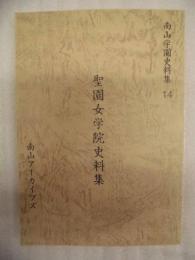 南山学園史料集 14
聖園女学院史料集
南山アーカイブズ